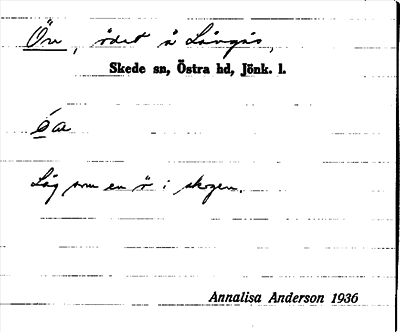 Ön, ödet å Lövgås,
Skede sn, Östra hd, Jönk. l.
Låg som en ö i skogen.
Annalisa Anderson 1936